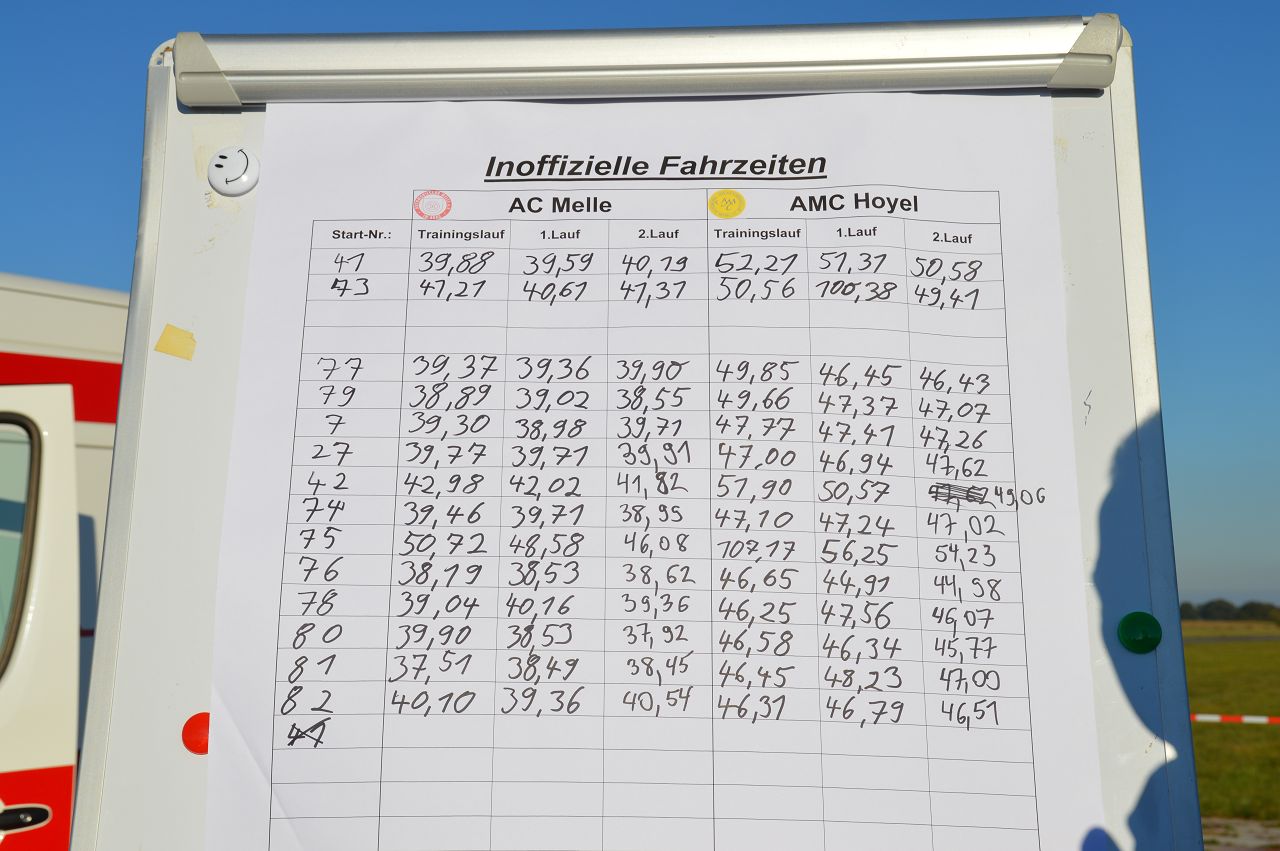 Inoffizielle Fahrzeiten
AC Melle AMC Hoyel
Start-Nr.: Trainingslauf 1.Lauf 2.Lauf Trainingslauf 1.Lauf 2.Lauf
41 39,88 39,59 40,19 52,21 51,31 50,58
73 41,21 40,61 41,31 50,56 100,38 49,41
77 39,37 39,36 39,90 49,85 46,45 46,43
79 38,89 39,02 38,55 49,66 47,37 47,07
7 39,30 38,98 39,71 47,77 47,41 47,26
27 39,77 39,71 39,91 47,00 46,94 47,62
42 42,98 42,02 41,82 51,90 50,57 49,06
74 39,46 39,71 38,95 47,10 47,24 47,02
75 50,72 48,58 46,08 107,17 56,25 54,23
76 38,19 38,53 38,62 46,65 44,91 44,98
78 39,04 40,16 39,36 46,25 47,56 46,07
80 39,90 38,53 37,92 46,58 46,34 45,77
81 37,51 38,49 38,45 46,45 48,23 47,00
82 40,10 39,36 40,54 46,31 46,79 46,51